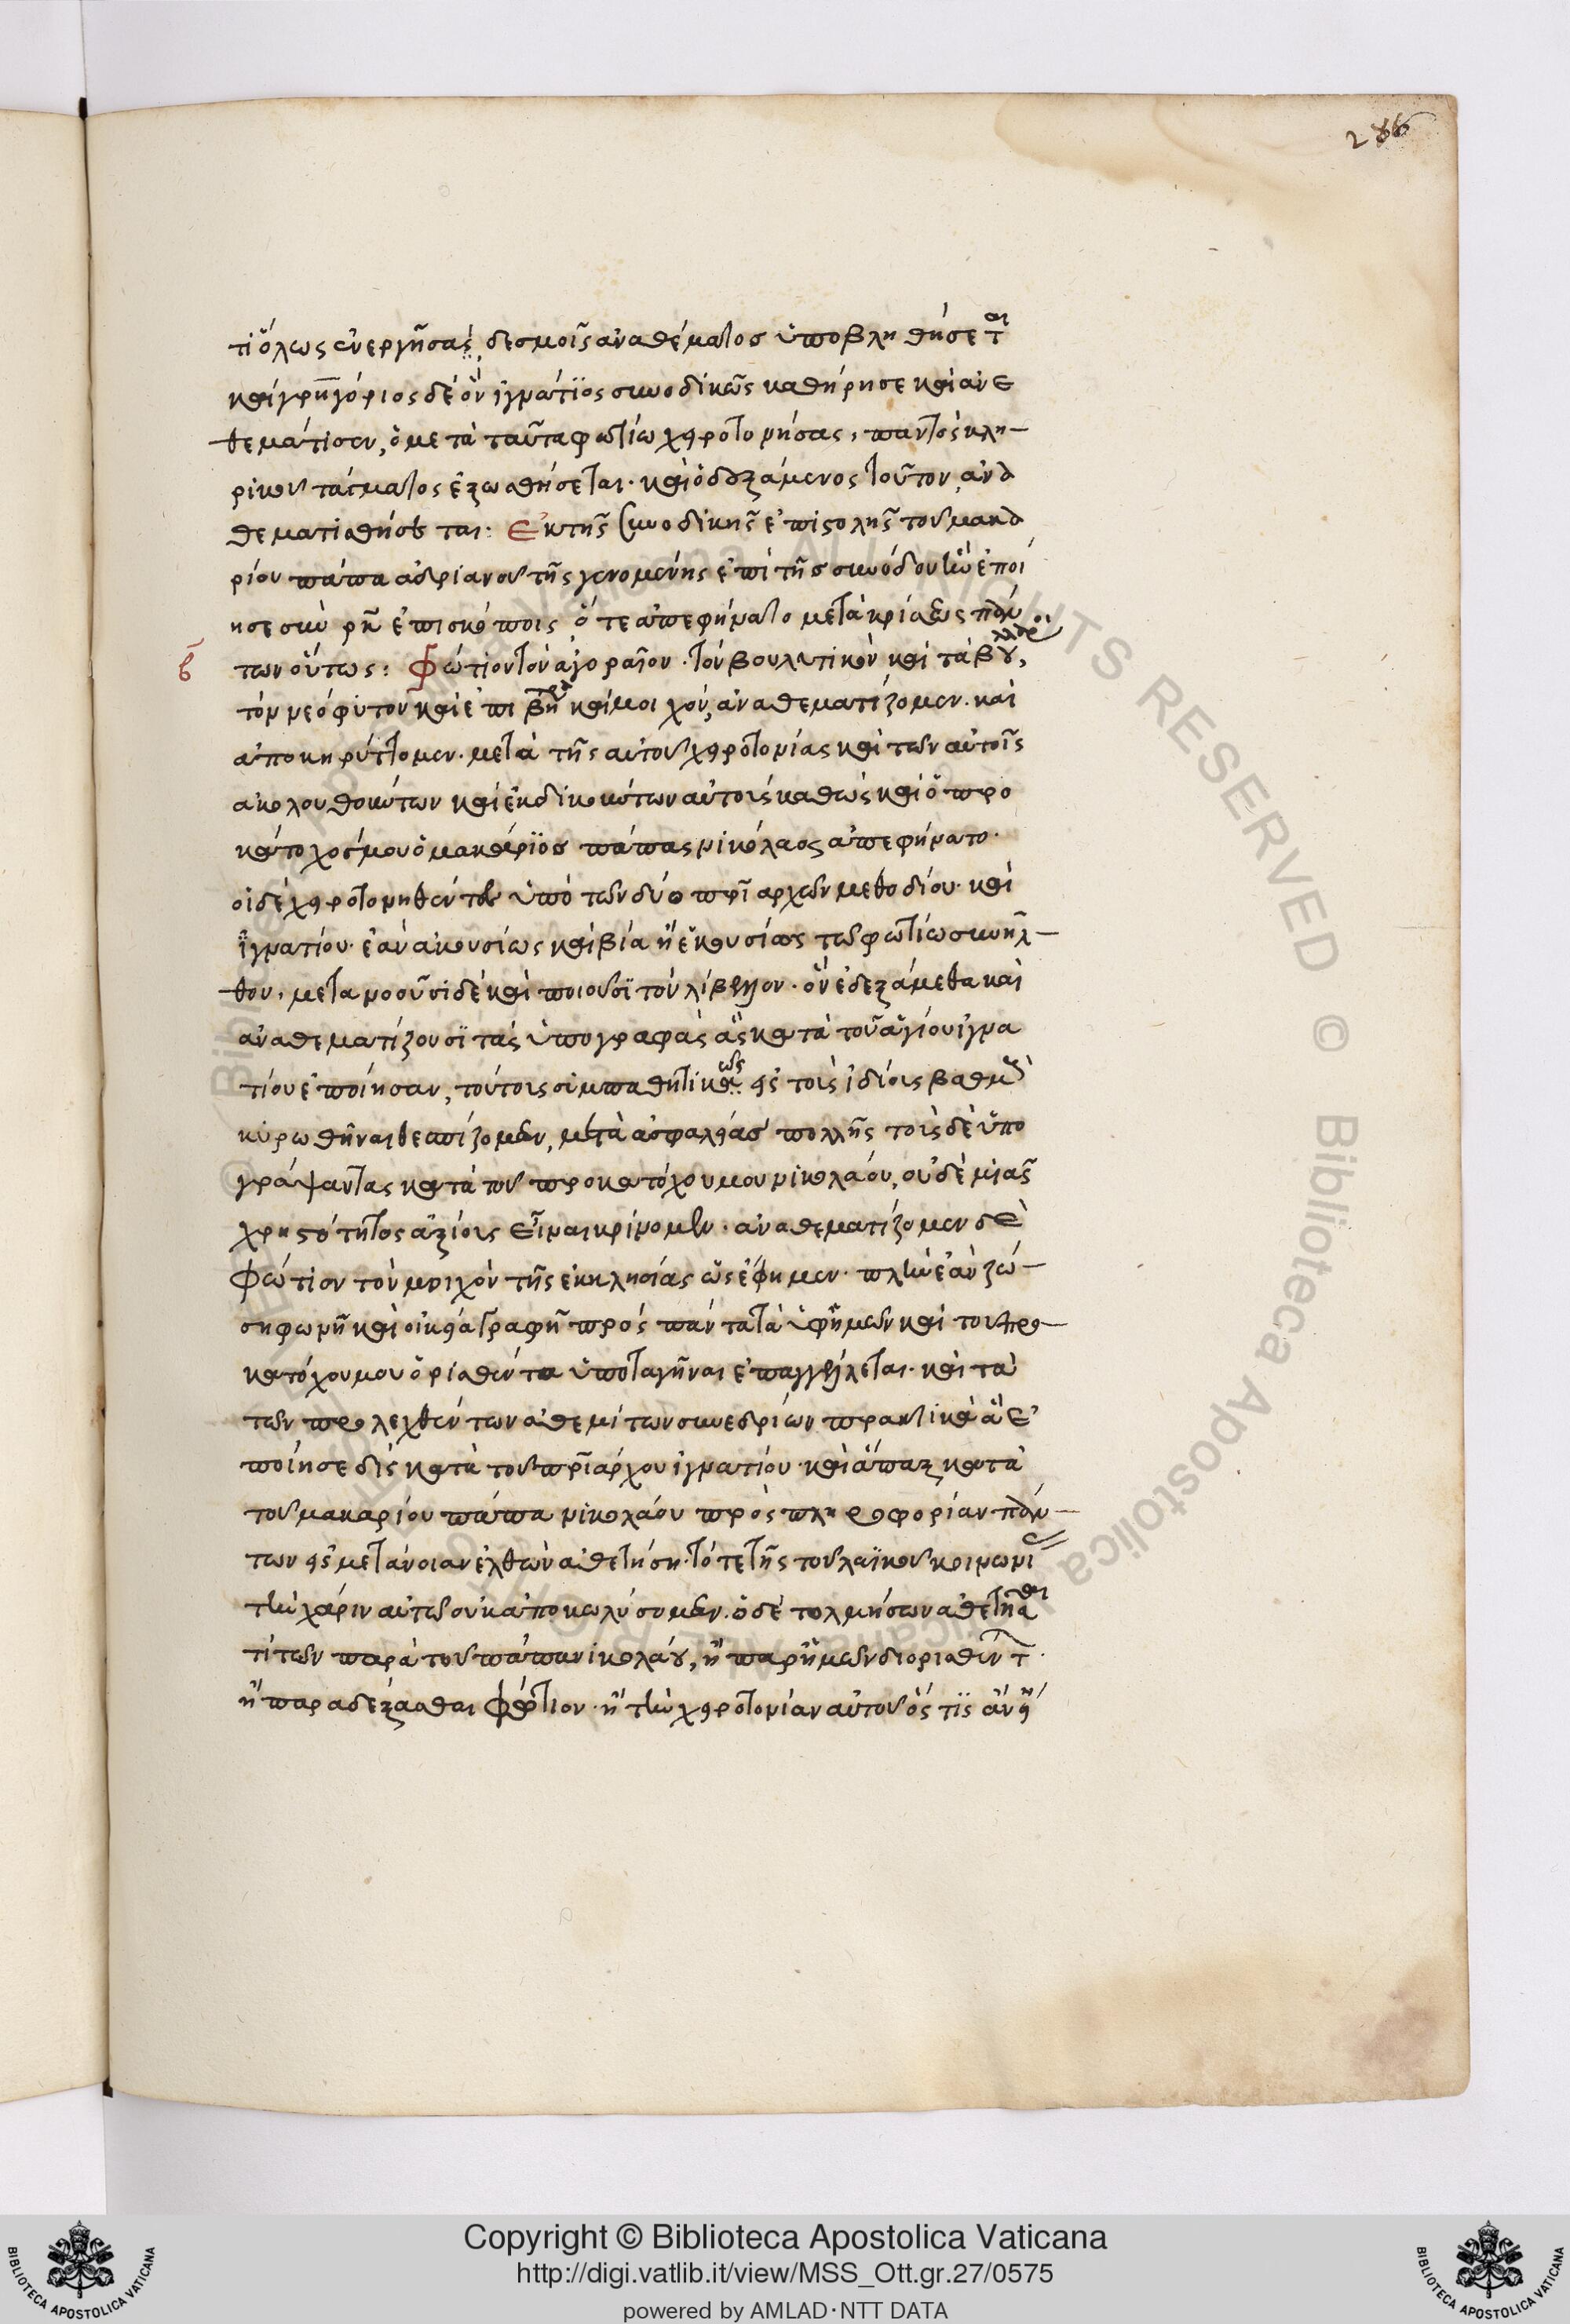 286
τι ὅλως ἐνεργῆσας, δεσμοῖς ἀναθέματος ὑποβληθήσεται
καὶ γρηγόριος δὲ ὃν ἰγνάτϊος συνοδικῶς καθήρησε καὶ ἀνε
θεμάτισεν, ὁ μετὰ ταῦτα φωτίω χειροτονήσας, παντὸς κλη
ρικοῦ τάγματος ἐξωσθήσεται· καὶ ὁ δεξάμενος τοῦτον, ἀνα
θεματισθήσεται: Ἐκ τῆς συνοδικῆς ἐπιστολῆς τοῦ μακα
ρίου πάπα ἀδριανοῦ τῆς γενομένης ἐπὶ τῆς συνόδου ἣν ἐποί
ησε σὺν ρλ ἐπισκόποις, ὅτε ἀπεφήνατο μετὰ κρίσεως πάν
β των οὕτως: Φώτιον τὸν ἀγοραῖον· τὸν βουλευτικὸν καὶ
τὸν νεόφυτον καὶ ἐπιβήτορα καὶ μοιχόν, ἀναθεματίζομεν· καὶ
ἀποκηρύττομεν· μετὰ τῆς αὐτοῦ χειροτονίας καὶ τῶν αὐτοῖς
ἀκολουθούντων καὶ ἐκδικούντων αὐτοὺς καθὼς καὶ ὁ προ
κάτοχός μου ὁ μακάριος πάπας νικόλαος ἀπεφήνατο·
οἱ δὲ χειροτονηθέντες ὑπὸ τῶν δύο πριαρχῶν μεθοδίου· καὶ
ἰγνατίου· ἐὰν ἀκουσίως καὶ βία ἢ ἑκουσίως τῶ φωτίω συνῆλ
θον, μετανοοῦσι δὲ καὶ ποιοῦσϊ τὸν λίβελλον· ὃν ἐδεξάμεθα καὶ
ἀναθεματίζουσϊ τὰς ὑπογραφὰς ἃς κατὰ τοῦ ἁγίου ἰγνα
τίου ἐποίησαν, τούτοις συμπαθητικῶς εἰς τοὺς ἰδίους βαθμοὺς
κυρωθῆναι θεσπίζομεν, μετὰ ἀσφαλείας πολλῆς τοὺς δὲ ὑπο
γράψαντας κατὰ τοῦ προκατόχου μου νικολάου, οὐδὲ μιᾶς
χρηστότητος ἀξίους εἶναι κρίνομεν· ἀναθεματίζομεν δὲ
φώτιον τὸν μοιχὸν τῆς ἐκκλησίας ὡς ἔφημεν· πλὴν ἐὰν ζώ
ση φωνῆ καὶ οἰκεία γραφῆ πρὸς πάντα τὰ ὑφ' ἡμῶν καὶ τοῦ προ
κατόχου μου ὁρισθέντα ὑποταγῆναι ἐπαγγέλλεται· καὶ τὰ
τῶν προλεχθέντων ἀθεμίτων συνεδρίων πρακτικὰ ἃ ἐ
ποίησε δὶς κατὰ τοῦ πριάρχου ἰγνατίου· καὶ ἅπαξ κατὰ
τοῦ μακαρίου πάπα νικολάου πρὸς πληροφορίαν πάν
των εἰς μετάνοιαν ἐλθὼν ἀθετήση· τότε τῆς τοῦ λαϊκοῦ κοινωνί
τὴν χάριν αὐτῶ οὐκ ἀποκωλύσομεν· ὁ δὲ τολμήσων ἀθετῆσαι
τὶ τῶν παρὰ τοῦ πάπα νικολάου, ἢ παρ' ἡμῶν διορισθέντ·
ἢ παραδέξασθαι φώτιον· ἢ τὴν χειροτονίαν αὐτοῦ ὅς τϊς ἂν εἴη